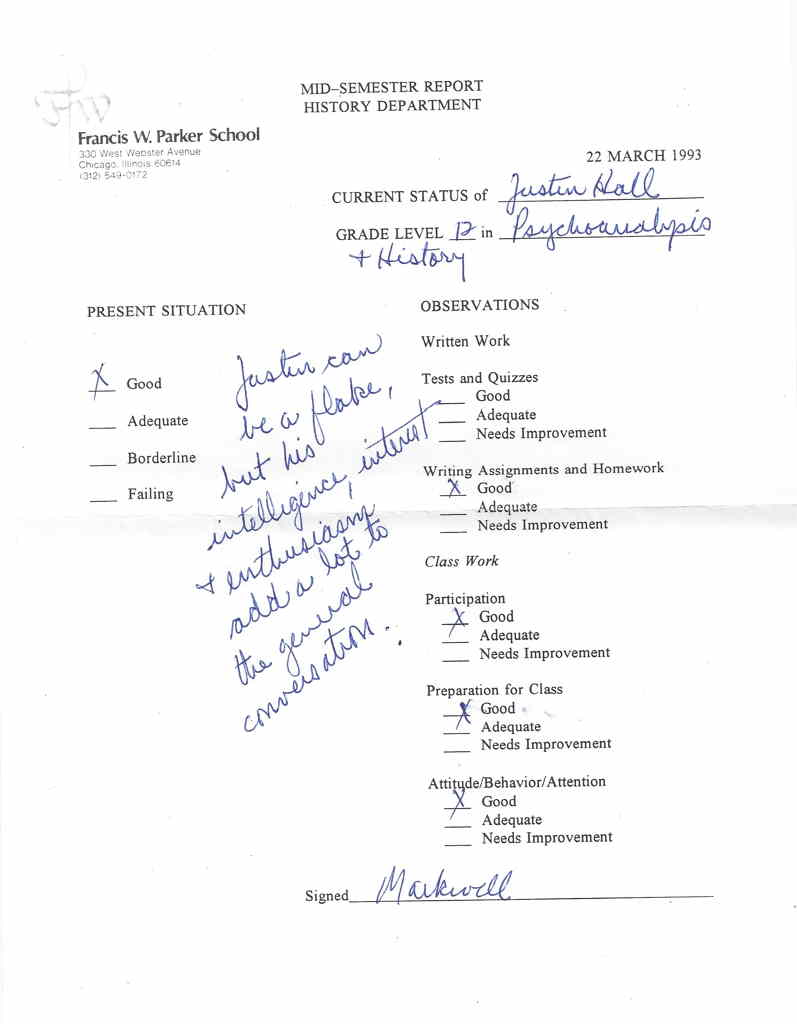 MID–SEMESTER REPORT
HISTORY DEPARTMENT
FW
Francis W. Parker School
330 West Webster Avenue
Chicago, Illinois 60614
(312) 549-0172
22 MARCH 1993
CURRENT STATUS of Justin Hall
GRADE LEVEL 12 in Psychoanalysis
+ History
PRESENT SITUATION
X Good
Adequate
Borderline
Failing
Justin can
be a flake,
but his
intelligence, interest
+ enthusiasm
add a lot to
the general
conversation.
OBSERVATIONS
Written Work
Tests and Quizzes
Good
Adequate
Needs Improvement
Writing Assignments and Homework
X Good
Adequate
Needs Improvement
Class Work
Participation
X Good
Adequate
Needs Improvement
Preparation for Class
X Good
Adequate
Needs Improvement
Attitude/Behavior/Attention
X Good
Adequate
Needs Improvement
Signed Markwell